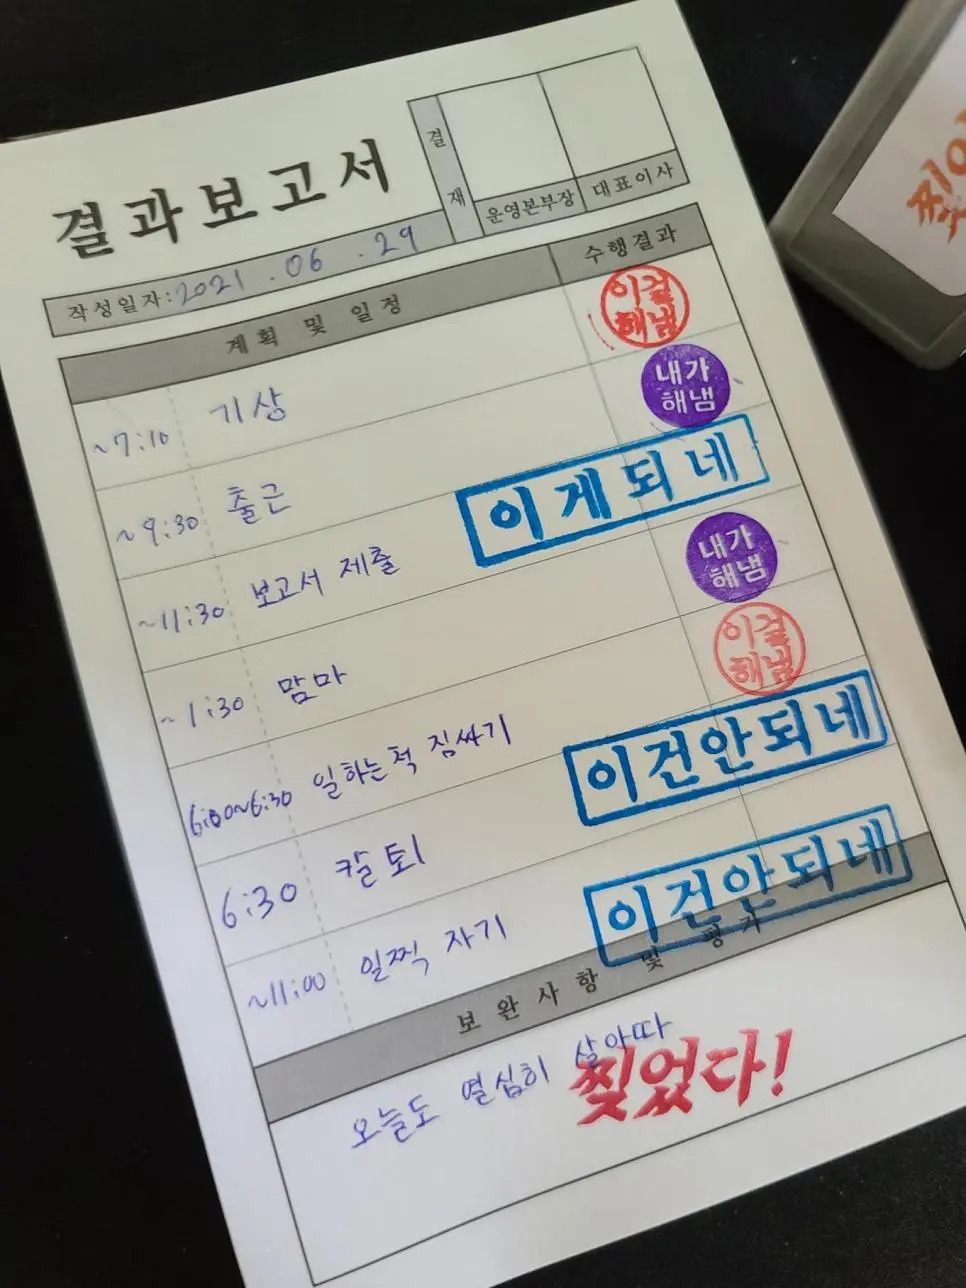 결재
결과보고서
운영본부장 대표이사
작성일자: 2021 . 06 . 29
계획 및 일정 수행결과
이걸
해냄
~7:10 기상
내가
해냄
~9:30 출근
이게되네
~11:30 보고서 제출
내가
해냄
~1:30 맘마
이걸
해냄
6:00~6:30 일하는척 짐싸기
이건안되네
6:30 칼퇴
이건안되네
~11:00 일찍 자기
보완사항 및 평가
오늘도 열심히 살아따
찢었다!